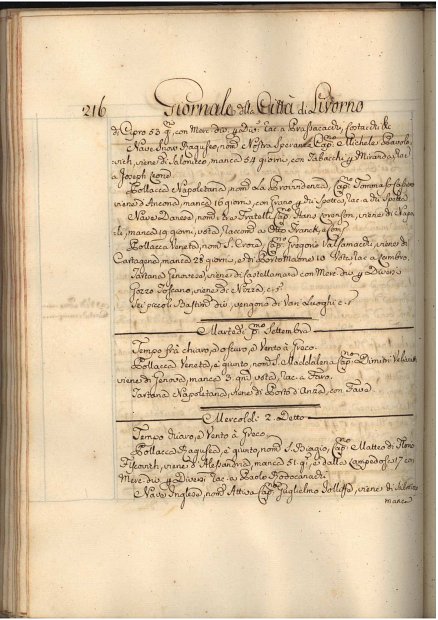 216 Giornale della Città di Livorno
di Cipro 53 gi. con Merc. div. e div. rac. a Brassacachi, Costachi &c
Nave Snow Raguseo, nom. Nostra Speranza Capno. Michele Pavolo
vich, viene di Salonicco, manca 54 giorni, con Tabacchi p. Miranda, rac.
a Joseph
Pollacca Napoletana, nom. La Providenza, Capno. Tommaso
viene d'Ancona, manca 16 giorni, con Grano p. di Spotta, rac. a di Spotta
Nave Danese, nom. tre Fratelli Capno. Hans Sorenson, viene di Napo
li, manca 19 giorni, vota, raccom. a Otto Franck, e Com.
Pollacca Veneta, nom. S. Croce, Capno. Gregorio Valsamachi, viene di
Cartagena manca 28 giorni, e di Porto Maone 10 Vota, rac. a Combro.
Tartana Genovese, viene di Castellamare con Merc. div. p. Diversi
Gozzo Toscano, viene di Nizza, c. s.
Sei piccoli Bastim. div. vengono di Vari Luoghi c. s.
Martedì pmo. Settembre
Tempo frà chiaro, e oscuro, e Vento à Greco.
Pollacca Veneta, è giunto, nom. S. Maddalena Capno. Dimitri
viene di Genova, manca 3 gni. vota, rac. a Faro.
Tartana Napoletana, viene di Porto d'Anzo, con Fava
Mercoldì 2. Detto
Tempo chiaro, e Vento à Greco
Pollacca Ragusea, è giunto, nom. S. Biagio, Capno. Matteo di Hono
viene d'Alessandria, manca 51 gi. e dalla Lampedosa 17 con
Merc. div. p. Diversi rac. a Paolo Rodocanachi
Nave Inglese, nom. Attiva Capno. Guglielmo Jolliffe, viene di
manca